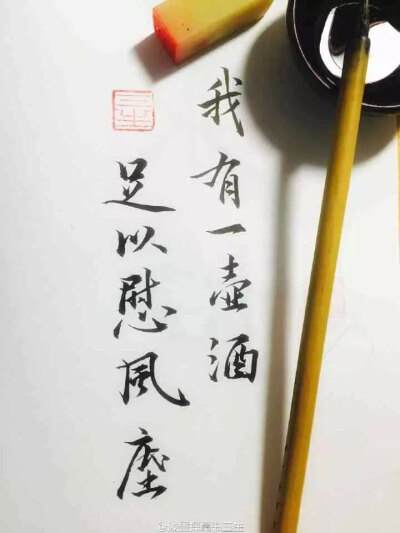 我有一壶酒
足以慰風塵